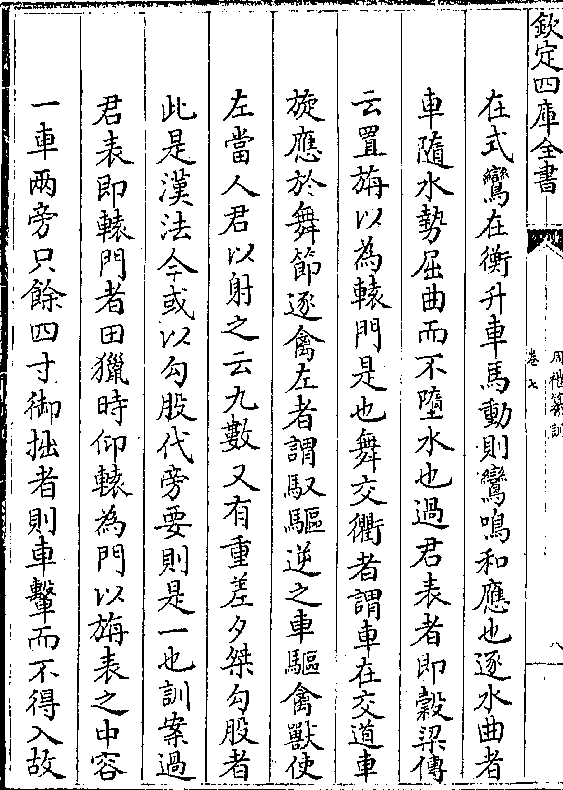 欽定四庫全書
周禮纂訓
卷七
八
在式鸞在衡升車馬動則鸞鳴和應也逐水曲者
車隨水勢屈曲而不墮水也過君表者即穀梁傳
云置旃以為轅門是也舞交衢者謂車在交道車
旋應於舞節逐禽左者謂馭驅逆之車驅禽獸使
左當人君以射之云九數又有重差夕桀勾股者
此是漢法今或以勾股代旁要則是一也訓案過
君表即轅門者田獵時仰轅為門以旃表之中容
一車兩旁只餘四寸御拙者則車轚而不得入故